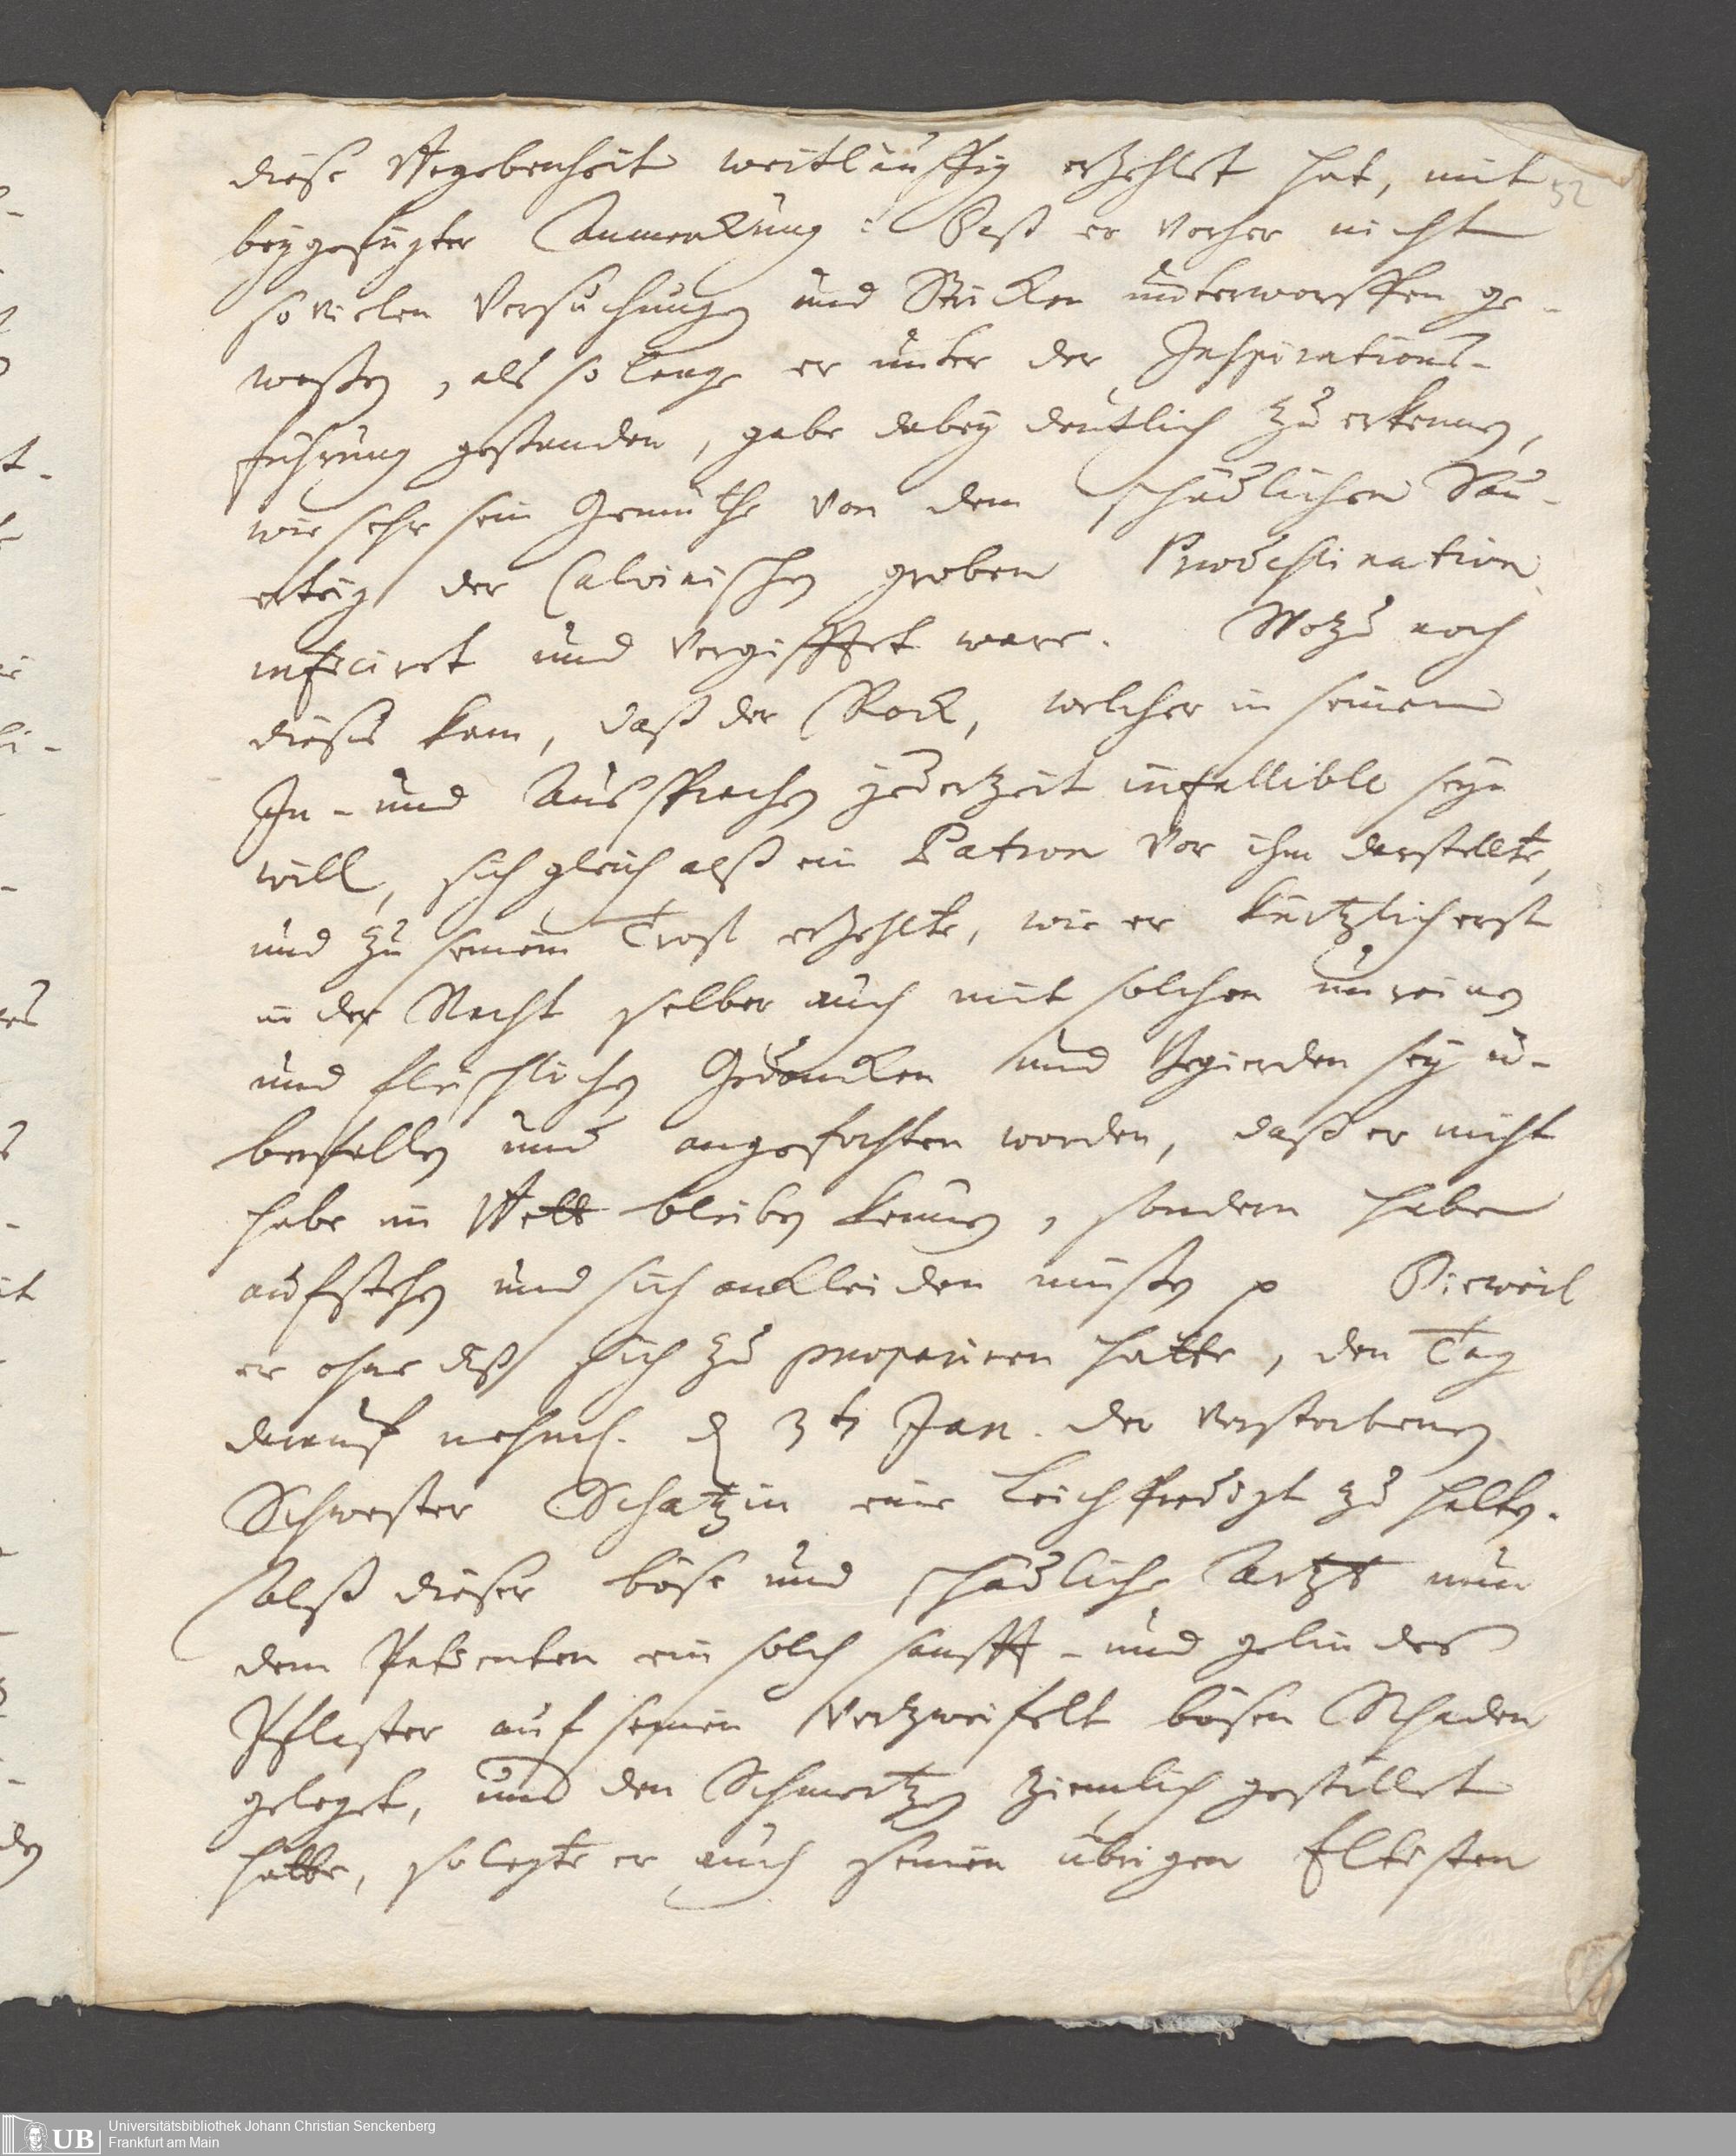 52
diese Begebenheit weitläuffig erzehlet hat, mit
beygefügter Anmerckung: Daß er vorher nicht
so vielen Versuchungen und Stricken unterworffen ge-
wesen, als so lang er unter der Inspirations-
führung gestanden, gabe dabey deutlich zu erkennen,
wie sehr sein Gemüthe von dem schädlichen Sau-
erteig der Calvinischen groben Praedestination
inficiret und vergifftet ware. Wozu noch
dieses kam, daß der Rock, welcher in seinem
In- und Aussprachen jederzeit infallible seyn
will, sich gleich alß ein Patron vor ihm darstellte,
und zu seinem Trost erzehlte, wie er kürtzlich erst
in der Nacht selber auch mit solchen unreinen
und fleischlichen Gedancken und Begierden sey ü-
berfallen und angefochten worden, daß er nicht
habe im Bett bleiben können, sondern habe
aufstehen und sich ankleiden müssen p Dieweil
er ohne diß sich zu praepariren hatte, den Tag
darauf nehml. d 3ten Jan. der verstorbenen
Schwester Schatzin eine Leichpredigt zu halten.
Alß dieser böse und schädliche Artzt nun
dem Patienten ein solch sanfft- und gelindes
Pflaster auf seinen verzweifelt bösen Schaden
geleget, und den Schmertzen ziemlich gestillet
hatte, so legte er auch seinen übrigen Eltesten
UB Universitätsbibliothek Johann Christian Senckenberg
Frankfurt am Main